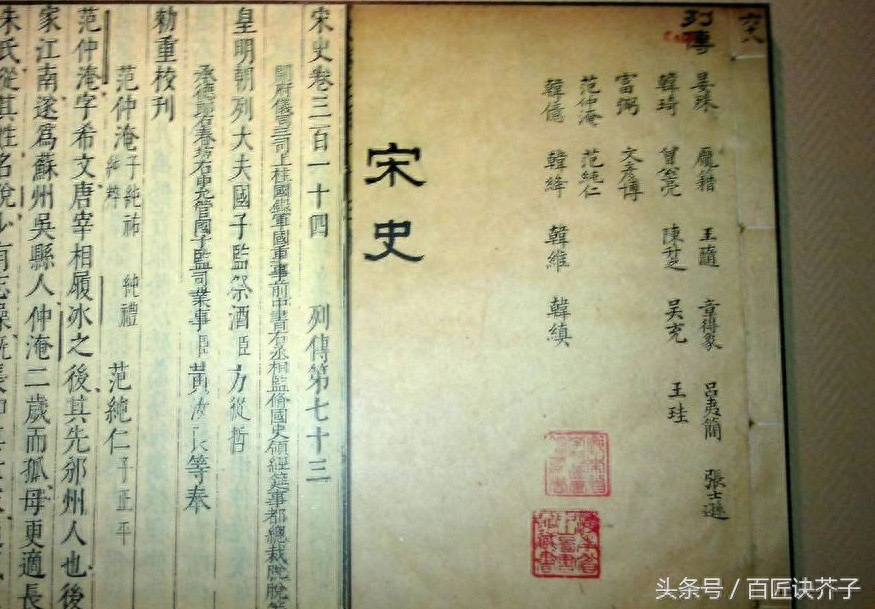 六十八
列傳
晏殊 龐籍 王隨 章得象 呂夷簡 張士遜
韓琦 曾公亮 陳升之 吳充 王珪
富弼 文彥博
范仲淹 范純仁
韓億 韓絳 韓維 韓縝
宋史
宋史卷三百一十四 列傳第七十三
開府儀同三司上柱國錄軍國重事前中書右丞相監脩國史領經筵事都總裁脫脫等
皇明朝列大夫國子監祭酒臣方從哲
承德郎右春坊右中允管國子監司業事臣黃汝良等奉
勅重校刊
范仲淹子純祐 純禮 純粹 范純仁子正平
范仲淹字希文唐宰相履冰之後其先邠州人也後
家江南遂爲蘇州吳縣人仲淹二歲而孤母更適長
朱氏從其姓名說少有志操既長
头条号 / 百匠诀芥子